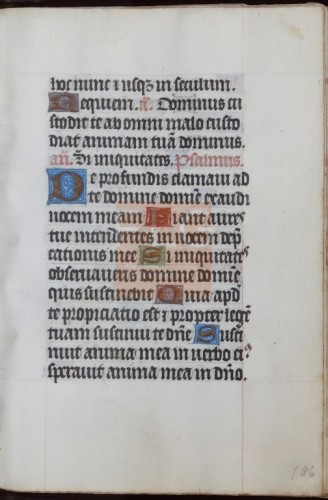 hoc nunc ⁊ usqꝫ in seculum.
Requiem. añ. Dominus cu
stodit te ab omni malo custo
diat animam tuã dominus.
añ. Si iniquitates. Psalmus.
De profundis clamavi ad
te domine domĩe exaudi
vocem meam Fiant aures
tue intendentes in vocem dep̃
cationis mee Si iniquitates
observaveris domine domĩe
quis sustinebit Quia apd̃
te propiciatio est ⁊ propter legẽ
tuam sustinui te dñe Susti
nuit anima mea in verbo eiꝰ
speravit anima mea in dño.
186